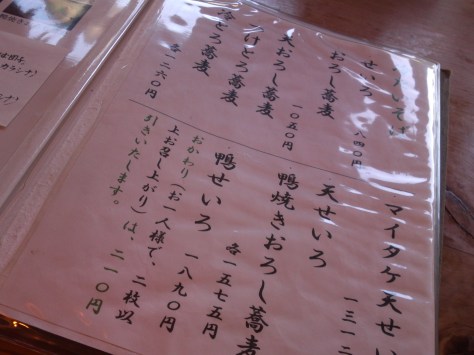 せいろ
おろし蕎麦
八四〇円
天おろし蕎麦
一〇五〇円
とろ蕎麦
各一二六〇円
マイタケ天せ
一三一二
天せいろ
鴨焼きおろし蕎麦
各一五七五円
鴨せいろ
一八九〇円
おかわり（お一人様で、二枚以
上お召し上がり）は、二一〇円
引きいたします。